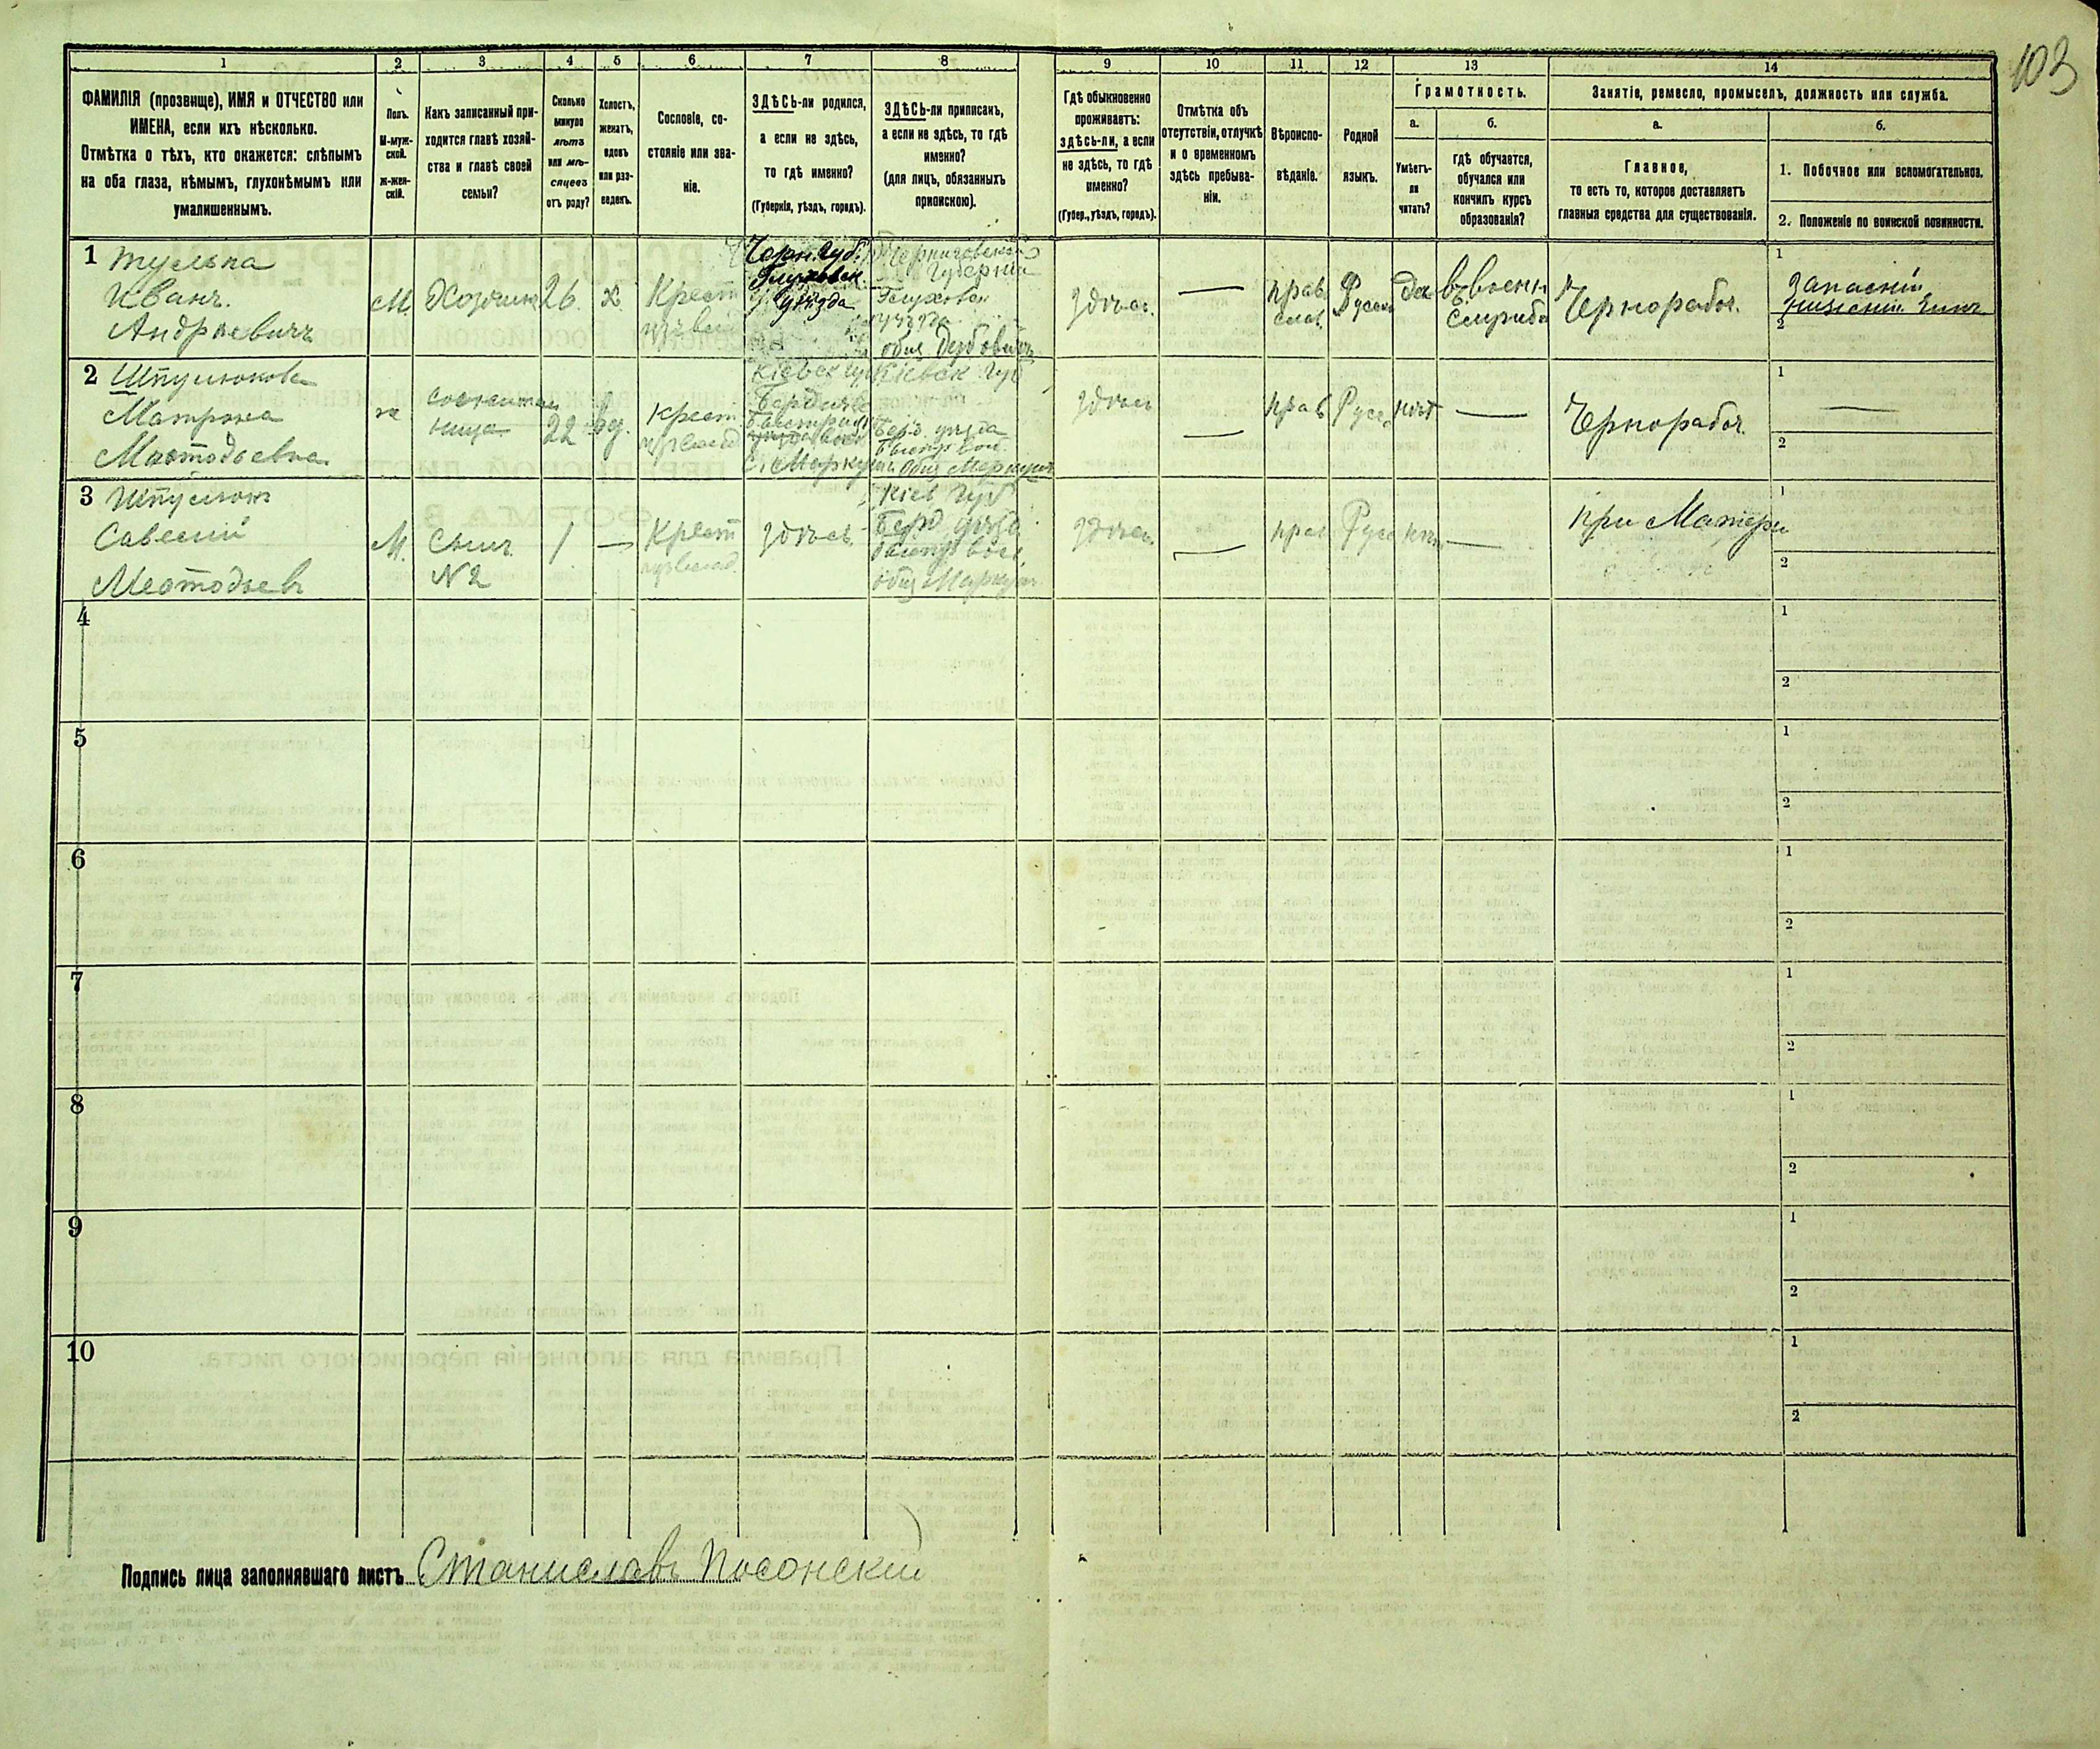 103
1 2 3 4 5 6 7 8 9 10 11 12 13 14
ФАМИЛІЯ (прозвище), ИМЯ и ОТЧЕСТВО или
ИМЕНА, если ихъ нѣсколько.
Отмѣтка о тѣхъ, кто окажется: слѣпымъ
на оба глаза, нѣмымъ, глухонѣмымъ или
умалишеннымъ.
Полъ.
М-муж-
ской.
Ж-жен-
скій.
Какъ записанный при-
ходится главѣ хозяй-
ства и главѣ своей
семьи?
Сколько
минуло
лѣтъ
или мѣ-
сяцевъ
отъ роду?
Холостъ,
женатъ,
вдовъ
или раз-
веденъ.
Сословіе, со-
стояніе или зва-
ніе.
ЗДѢСЬ-ли родился,
а если не здѣсь,
то гдѣ именно?
(Губернія, уѣздъ, городъ).
ЗДѢСЬ-ли приписанъ,
а если не здѣсь, то гдѣ
именно?
(для лицъ, обязанныхъ
припискою).
Гдѣ обыкновенно
проживаетъ:
здѣсь-ли, а если
не здѣсь, то гдѣ
именно?
(Губер., уѣздъ, городъ).
Отмѣтка объ
отсутствіи, отлучкѣ
и о временномъ
здѣсь пребыва-
ніи.
Вѣроиспо-
вѣданіе.
Родной
языкъ.
Грамотность.
а.
Умѣетъ-
ли
читать?
б.
гдѣ обучается,
обучался или
кончилъ курсъ
образованія?
Занятіе, ремесло, промыселъ, должность или служба.
а.
Главное,
то есть то, которое доставляетъ
главныя средства для существованія.
б.
1. Побочное или вспомогательное.
2. Положеніе по воинской повинности.
1
Тулька
Иванъ.
Андреевичъ
М.
Хозяинъ
26.
х
Крест
Черн. Губ.
Глуховск.
уѣзда
Черниговской
Губерніи
Глуховск
уѣзда
общ Дубович
здѣсь.
—
прав
слав.
Русск
да
въ воен
Службѣ
Чернорабоч.
1
Запасной
2
2
Шпулюкова
Матрона
Мефодьевна
ж
22
вд.
крест
Кіевск губ
Бердич
с. Маркуш
Кіевск Губ
Берд. уѣзда
общ Маркуш
здѣсь
—
прав
Русс
нѣт
—
Чернорабоч.
1
—
2
3
Шпулюк
Савелий
М.
Сынъ
№ 2
1
—
Крест
здѣсь.
Кіев Губ
Берд уѣзд
общ Маркуш
здѣсь
—
прав
Русс
нѣт
—
при Матери
1
2
4
1
2
5
1
2
6
1
2
7
1
2
8
1
2
9
1
2
10
1
2
Подпись лица заполнявшаго листъ Станиславъ Посонский